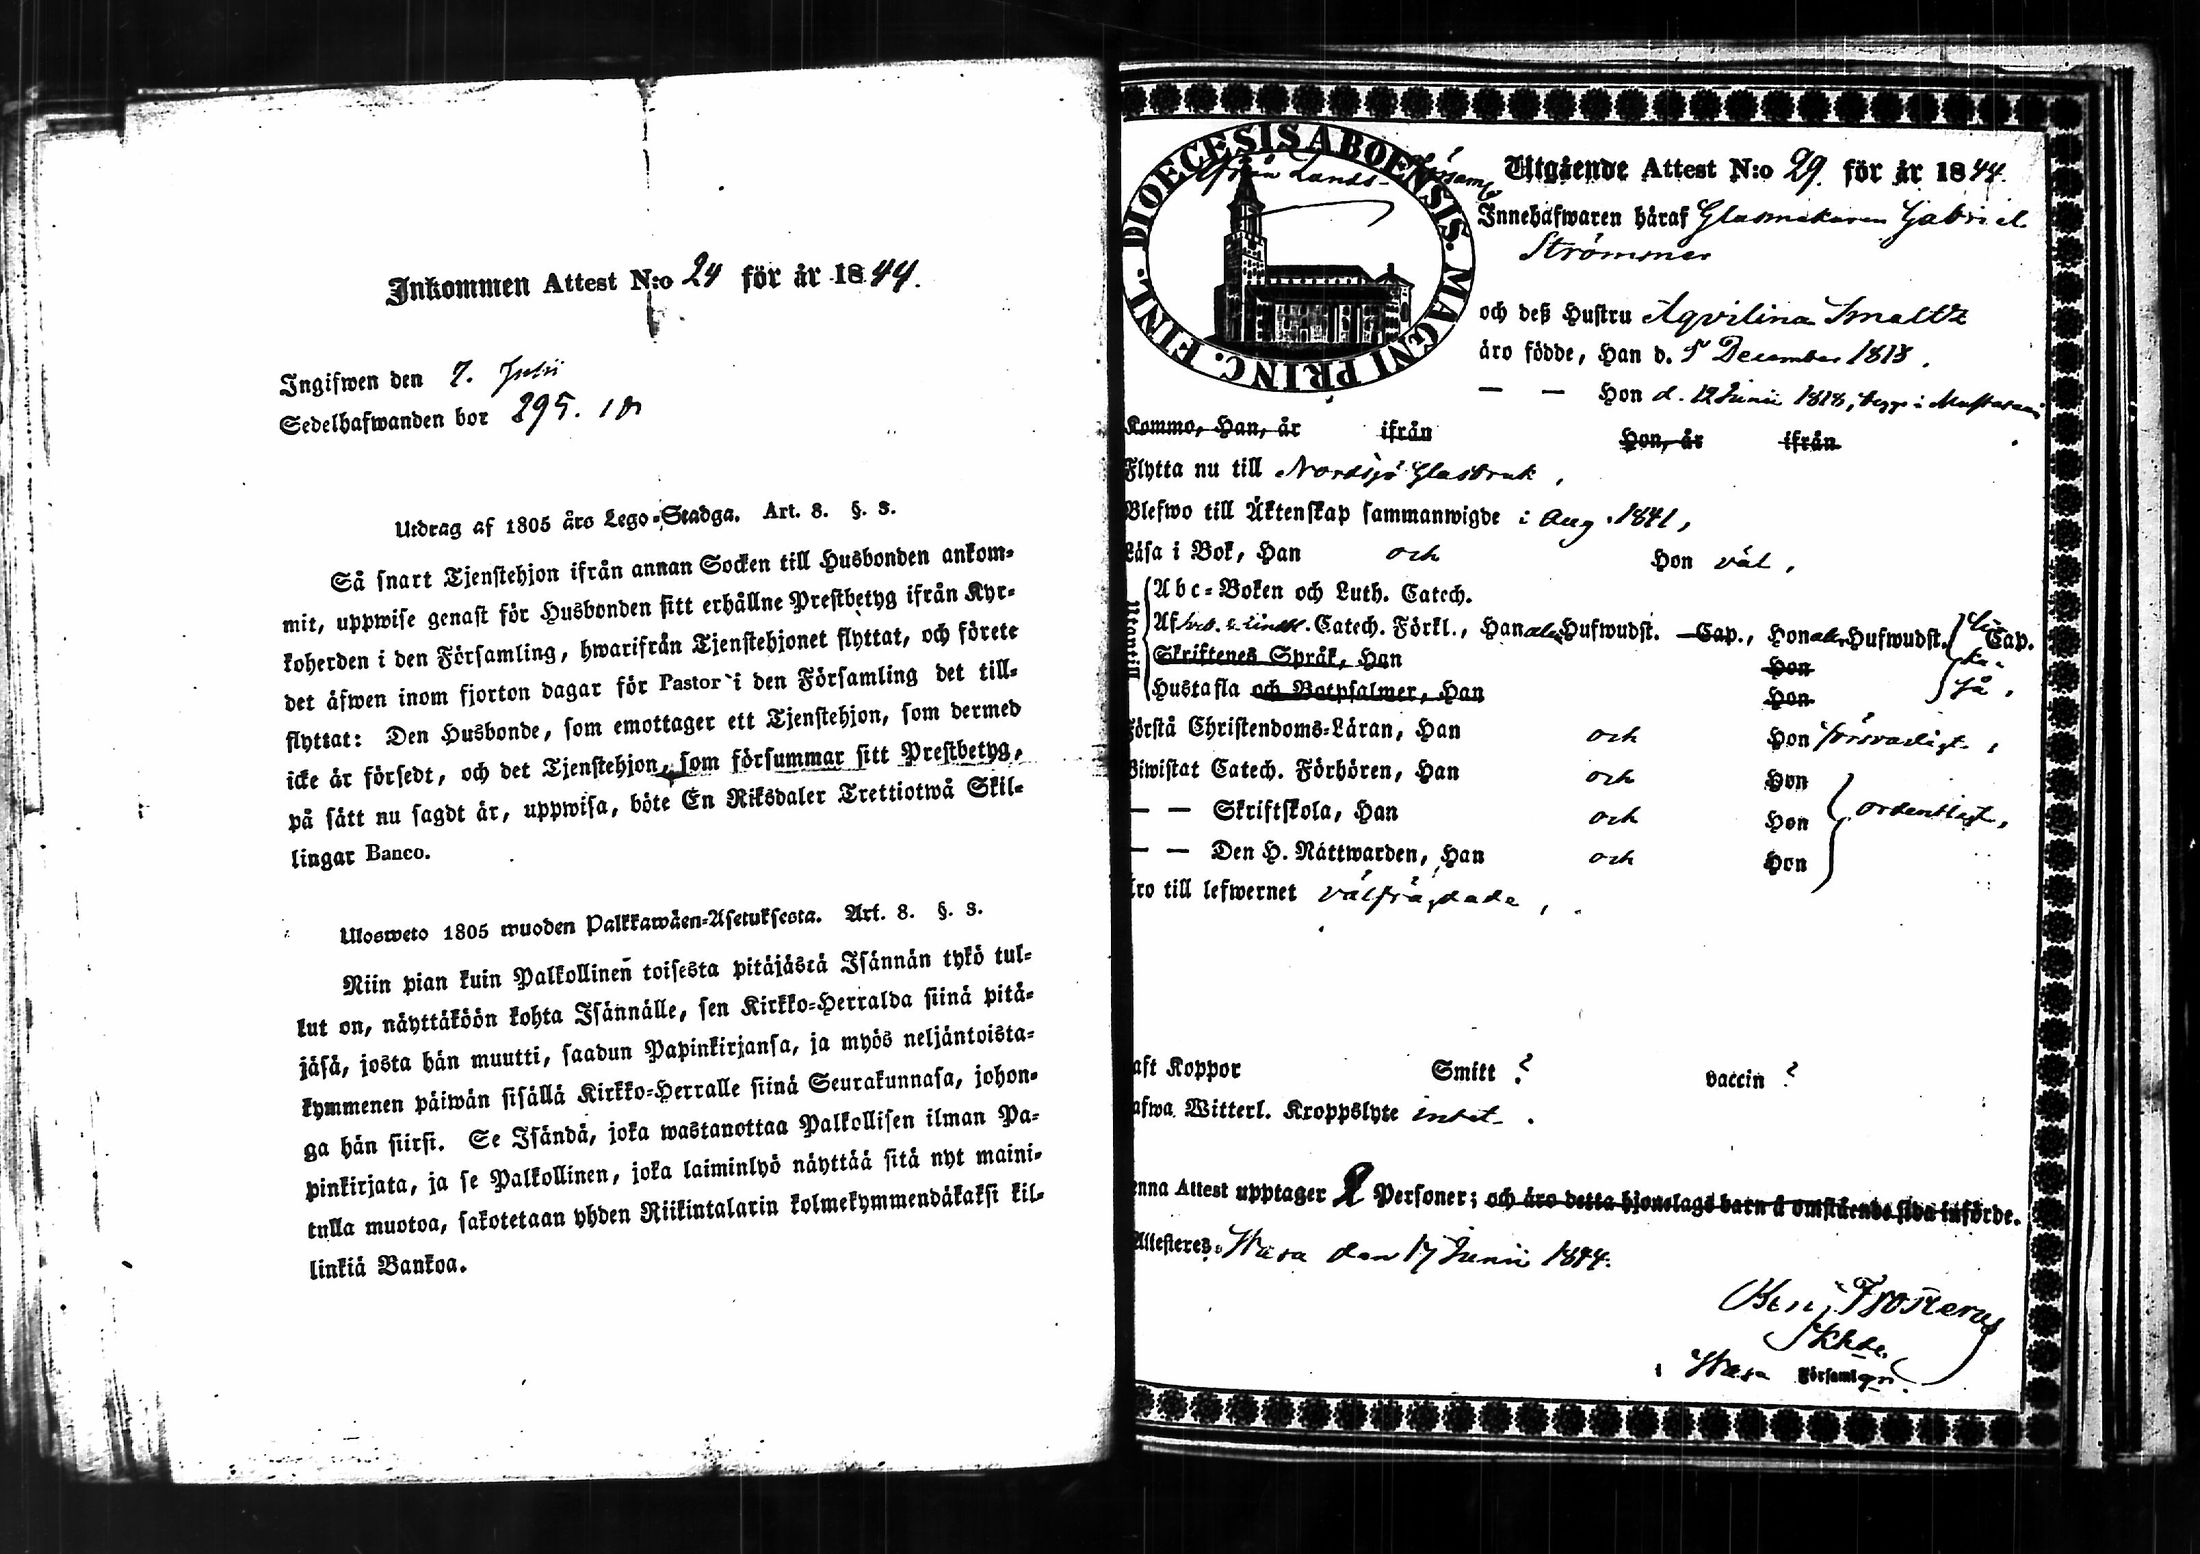 Inkommen Attest N:o 24 för år 1844.
Ingifwen den 7. Julii
Sedelhafwanden bor 295.
Utdrag af 1805 års Lego-Stadga. Art. 8. §. 3.
Så snart Tjenstehjon ifrån annan Socken till Husbonden ankom-
mit, uppwise genast för Husbonden sitt erhållne Prestbetyg ifrån Kyr-
koherden i den Församling, hwarifrån Tjenstehjonet flyttat, och förete
det äfwen inom fjorton dagar för Pastor i den Församling det till-
flyttat: Den Husbonde, som emottager ett Tjenstehjon, som dermed
icke är försedt, och det Tjenstehjon, som försummar sitt Prestbetyg,
på sätt nu sagdt är, uppwisa, böte En Riksdaler Trettiotwå Skil-
lingar Banco.
Ulosweto 1805 wuoden Palkkawäen-Asetuksesta. Art. 8. §. 3.
Niin pian kuin Palkollinen toisesta pitäjästä Isännän tykö tul-
lut on, näyttäköön kohta Isännälle, sen Kirkko-Herralda siinä pitä-
jäsä, josta hän muutti, saadun Papinkirjansa, ja myös neljäntoista-
kymmenen päiwän sisällä Kirkko-Herralle siinä Seurakunnasa, johon-
ga hän siirsi. Se Isändä, joka wastanottaa Palkollisen ilman Pa-
pinkirjata, ja se Palkollinen, joka laiminlyö näyttää sitä nyt maini-
tulla muotoa, sakotetaan yhden Riikintalarin kolmekymmendäkaksi kil-
linkiä Bankoa.
DIOECESIS ABOENSIS. MAGNI PRINC. FINL.
ifrån Lands- Församl
Utgående Attest N:o 29. för år 1844.
Innehafwaren häraf Glasmakaren Gabriel
Strömmer
och deß Hustru Aqvilina Smaltz
äro födde, Han d. 5 December 1818.
— — Hon d. 12 Junii 1818, begge i Mustasaari
Kommo, Han, år ifrån Hon, år ifrån
Flytta nu till Nordsjö Glasbruk,
Blefwo till Äktenskap sammanwigde i Aug. 1841,
Läsa i Bok, Han och Hon väl,
Abc-Boken och Luth. Catech.
Af Catech. Förkl., Han Hufwudst. Cap., Hon Hufwudst. Cap.
Skriftenes Språk, Han Hon
Hustafla och Botpsalmer, Han Hon
Utantill
Förstå Christendoms-Läran, Han och Hon försvarligt,
Biwistat Catech. Förhören, Han och Hon
— — Skriftskola, Han och Hon ordentligt,
— — Den H. Nattwarden, Han och Hon
äro till lefwernet välfrägdade,
aft Koppor Smitt ? vaccin ?
afwa Witterl. Kroppslyte intet.
enna Attest upptager 2 Personer; och äro detta hjonelags barn å omstående sida införde.
Attesteres. Wasa den 17 Junii 1844.
Benj. Frosterus
Khde.
i Wasa Församl